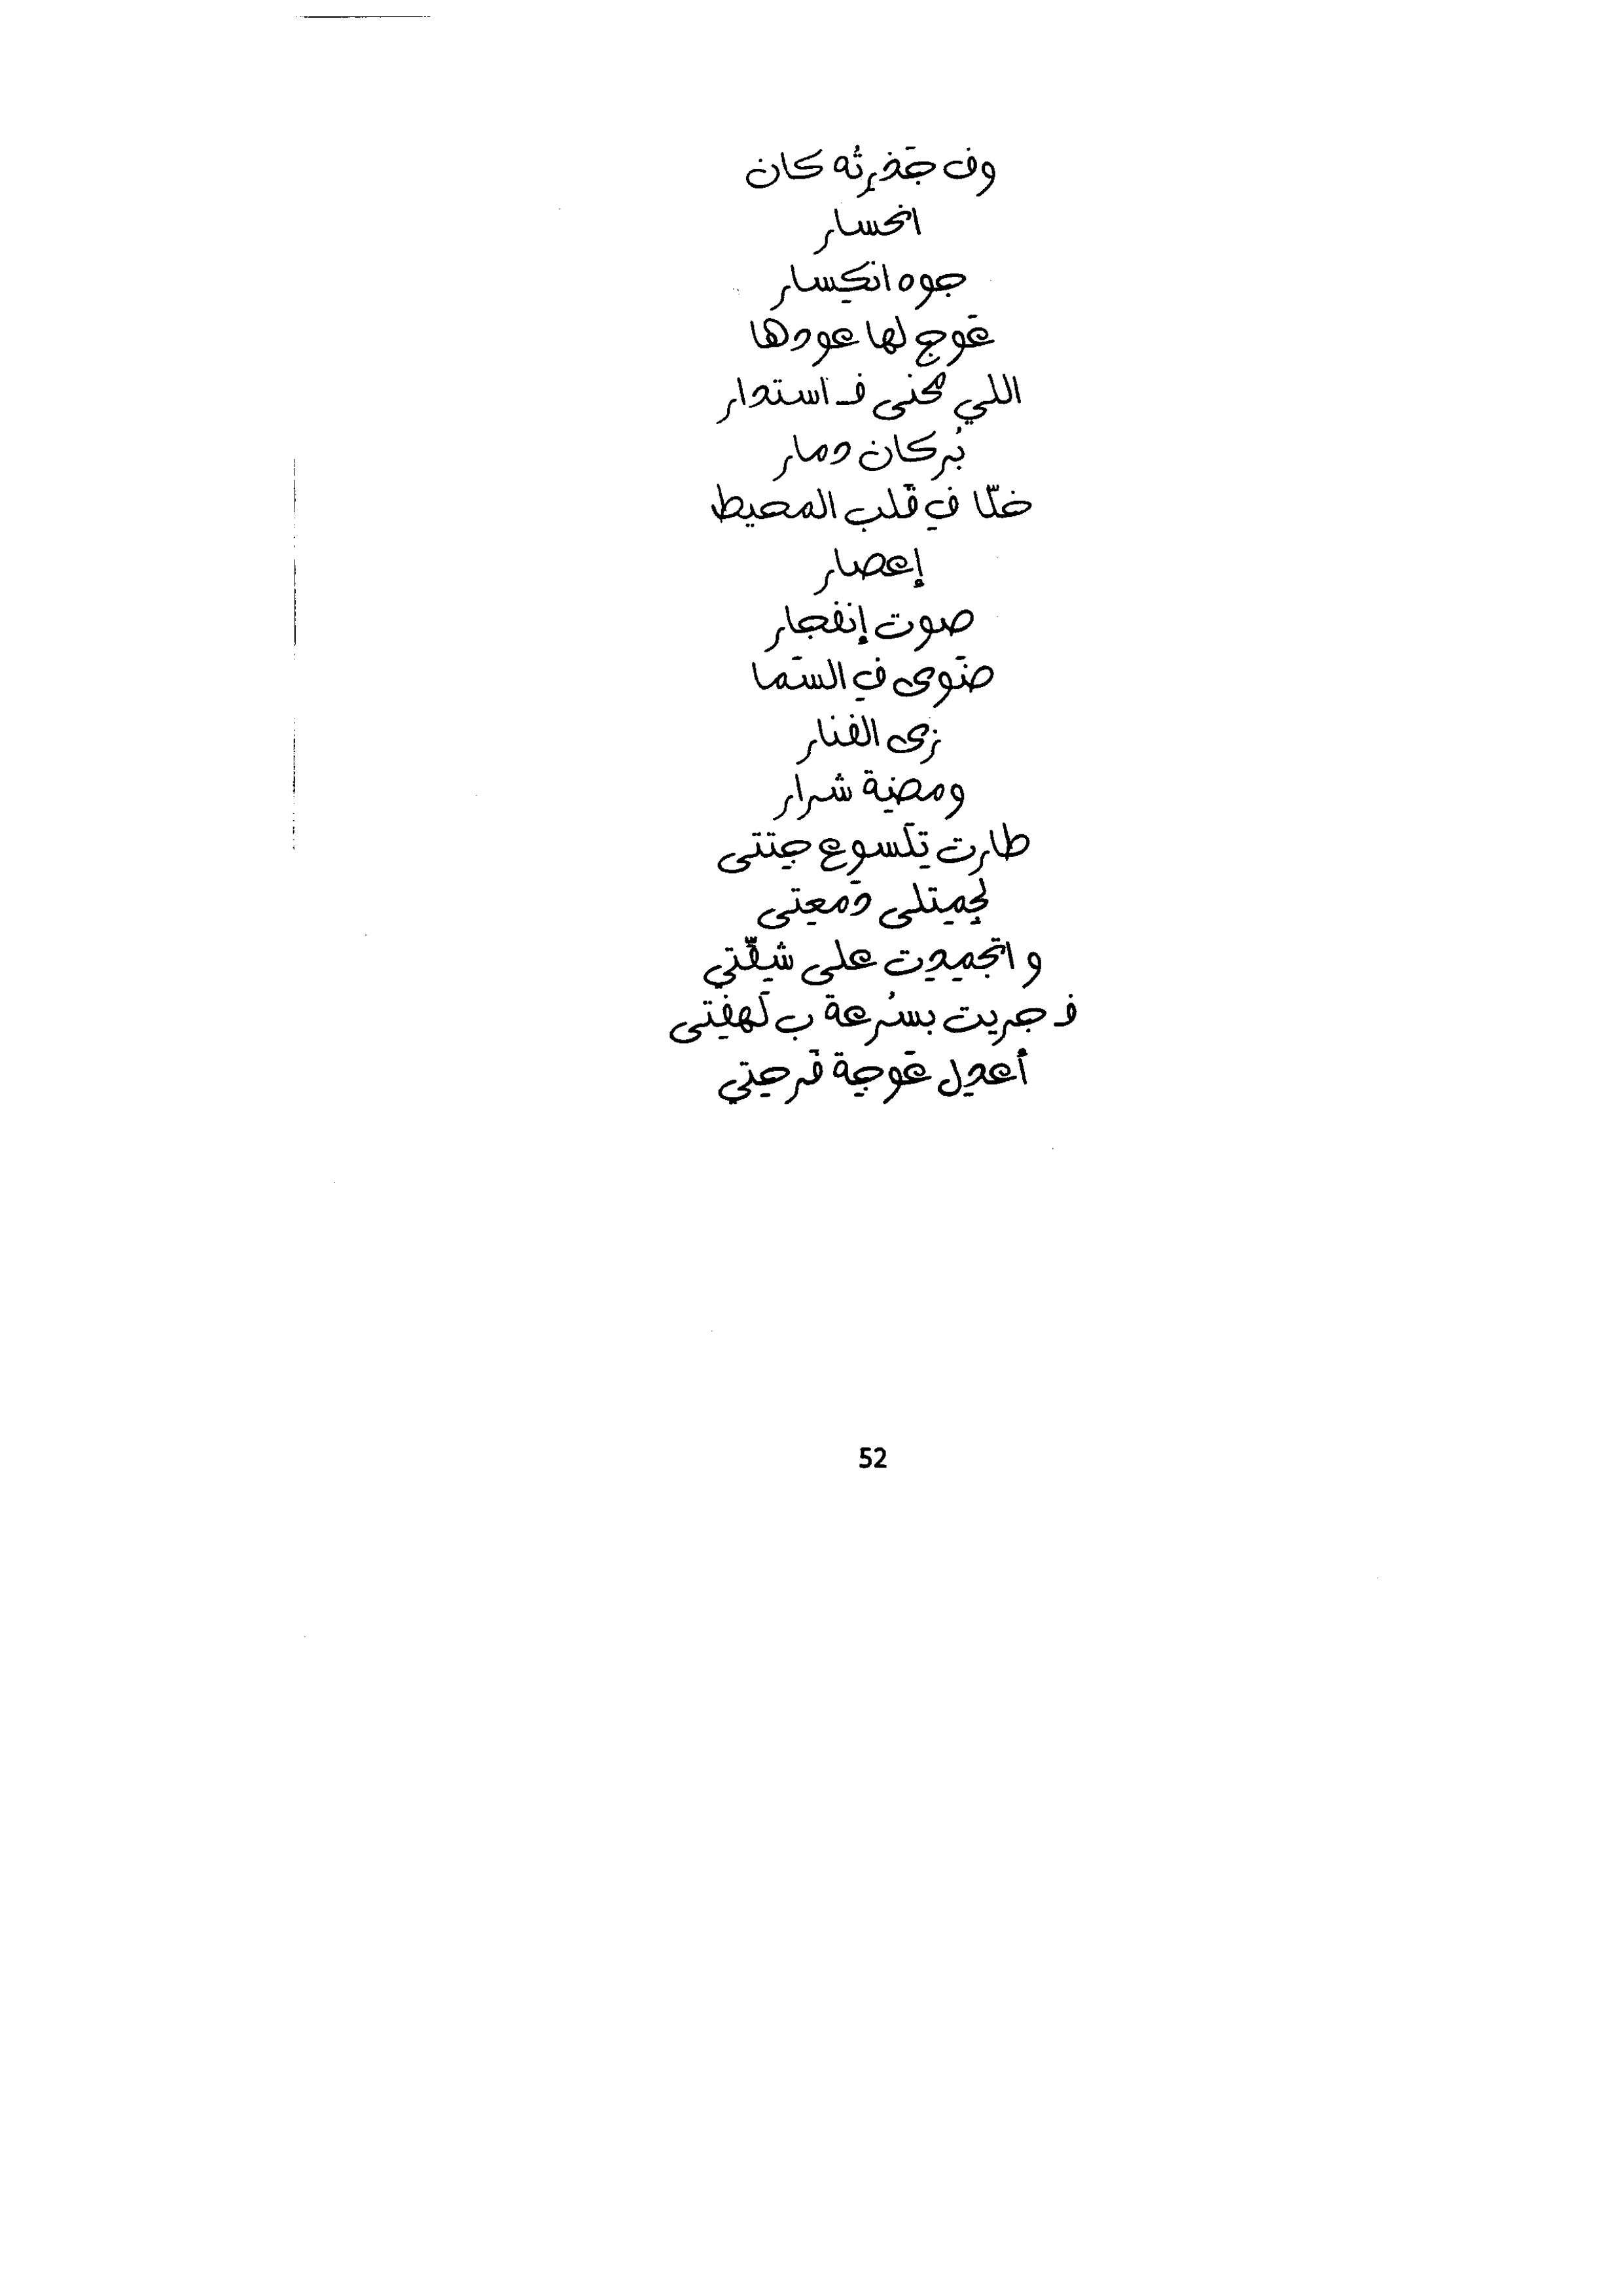 وف جَذرِتُه كان
انحسار
جوه انكِسار
عَوج لها عودها
اللي محنى فـ استدار
بُركان دمار
خلّا فِ قَلب المحيط
إعصار
صوت إنفجار
ضَوى فِ السَما
زى الفنار
ومضِة شرار
طارت تِلَسوَع جِتتى
لِجمِتلى دَمعِتى
و اتجمِدِت على شِقّتِي
فـ جريِت بسُرعة بِ لَهفِتى
أعدِل عَوجِة فَرحِتِي
52